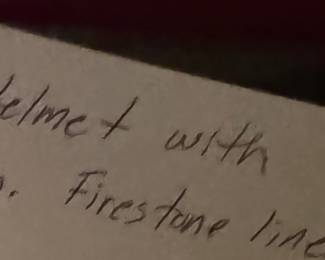 elmet with
. Firestone line